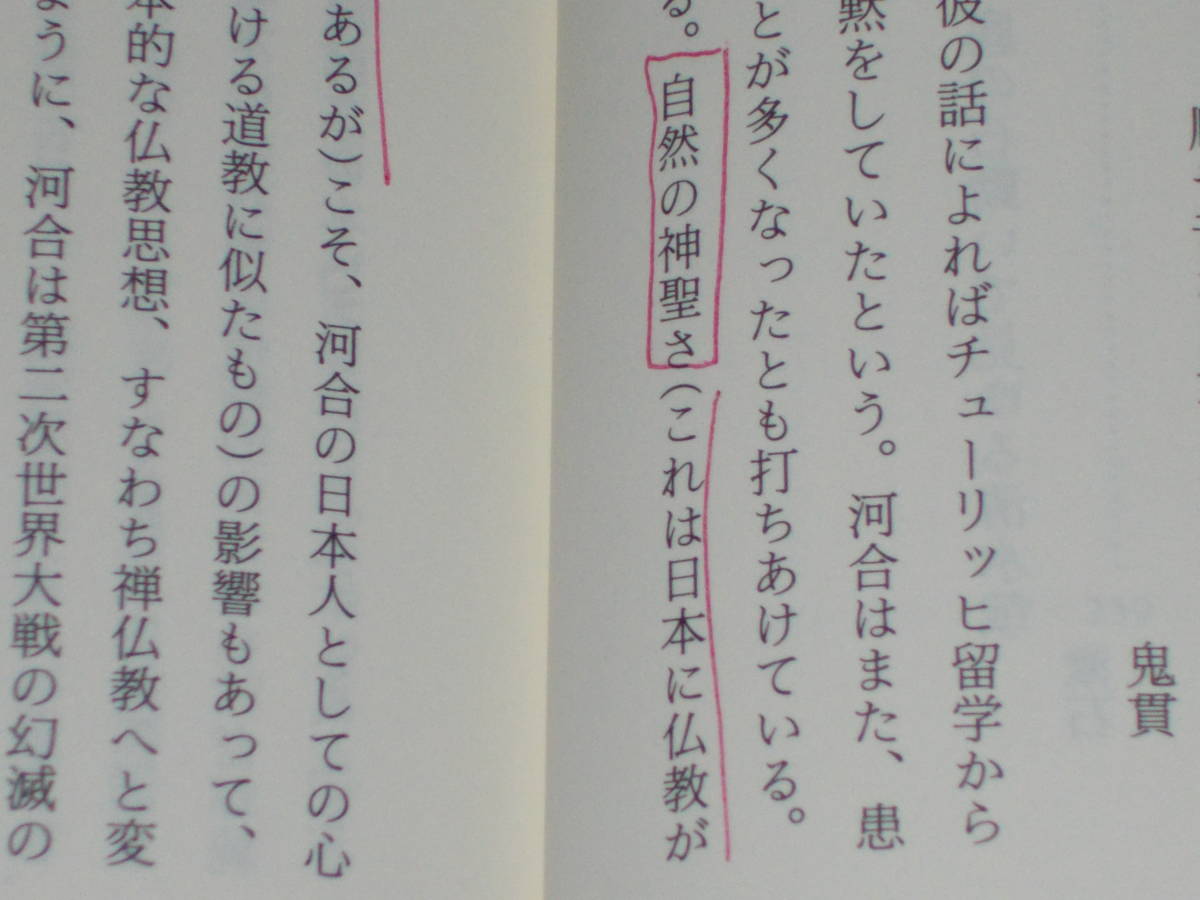 鬼貫
彼の話によればチューリッヒ留学から
黙をしていたという。河合はまた、患
とが多くなったとも打ちあけている。
る。自然の神聖さ(これは日本に仏教が
あるが)こそ、河合の日本人としての心
ける道教に似たもの)の影響もあって、
本的な仏教思想、すなわち禅仏教へと変
ように、河合は第二次世界大戦の幻滅の